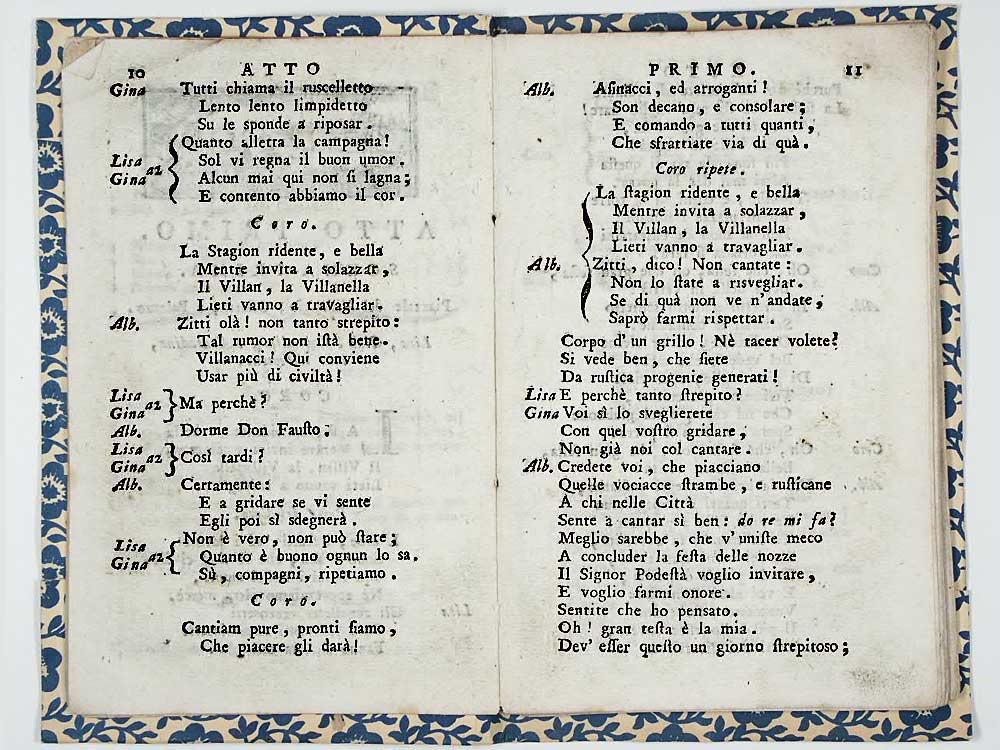 10 ATTO
Gina Tutti chiama il ruscelletto
Lento lento limpidetto
Su le sponde a riposar.
Quanto alletta la campagna!
Lisa Sol vi regna il buon umor.
Gina a2 Alcun mai qui non ſi lagna;
E contento abbiamo il cor.
Coro.
La Stagion ridente, e bella
Mentre invita a solazzar,
Il Villan, la Villanella
Lieti vanno a travagliar.
Alb. Zitti olà! non tanto strepito:
Tal rumor non iſtà bene.
Villanacci! Qui conviene
Usar più di civiltà!
Lisa
Gina a2 Ma perchè?
Alb. Dorme Don Fauſto.
Lisa
Gina a2 Così tardi?
Alb. Certamente:
E a gridare se vi sente
Egli poi sì sdegnerà.
Non è vero, non può ſtare;
Lisa
Gina a2 Quanto è buono ognun lo sa.
Sù, compagni, ripetiamo.
Coro.
Cantiam pure, pronti ſiamo,
Che piacere gli darà!
PRIMO. 11
Alb. Aſinacci, ed arroganti!
Son decano, e consolare;
E comando a tutti quanti,
Che sfrattiate via di quà.
Coro ripete.
La ſtagion ridente, e bella
Mentre invita a solazzar,
Il Villan, la Villanella
Lieti vanno a travagliar.
Alb. Zitti, dico! Non cantate:
Non lo ſtate a risvegliar.
Se di quà non ve n'andate,
Saprò farmi rispettar.
Corpo d'un grillo! Nè tacer volete?
Si vede ben, che ſiete
Da ruſtica progenie generati!
Lisa E perchè tanto ſtrepito?
Gina Voi sì lo sveglierete
Con quel voſtro gridare,
Non già noi col cantare.
Alb. Credete voi, che piacciano
Quelle vociacce ſtrambe, e ruſticane
A chi nelle Città
Sente a cantar sì ben: do re mi fa?
Meglio sarebbe, che v'uniſte meco
A concluder la feſta delle nozze
Il Signor Podeſtà voglio invitare,
E voglio farmi onore.
Sentite che ho pensato.
Oh! gran teſta è la mia.
Dev' eſſer queſto un giorno ſtrepitoso;